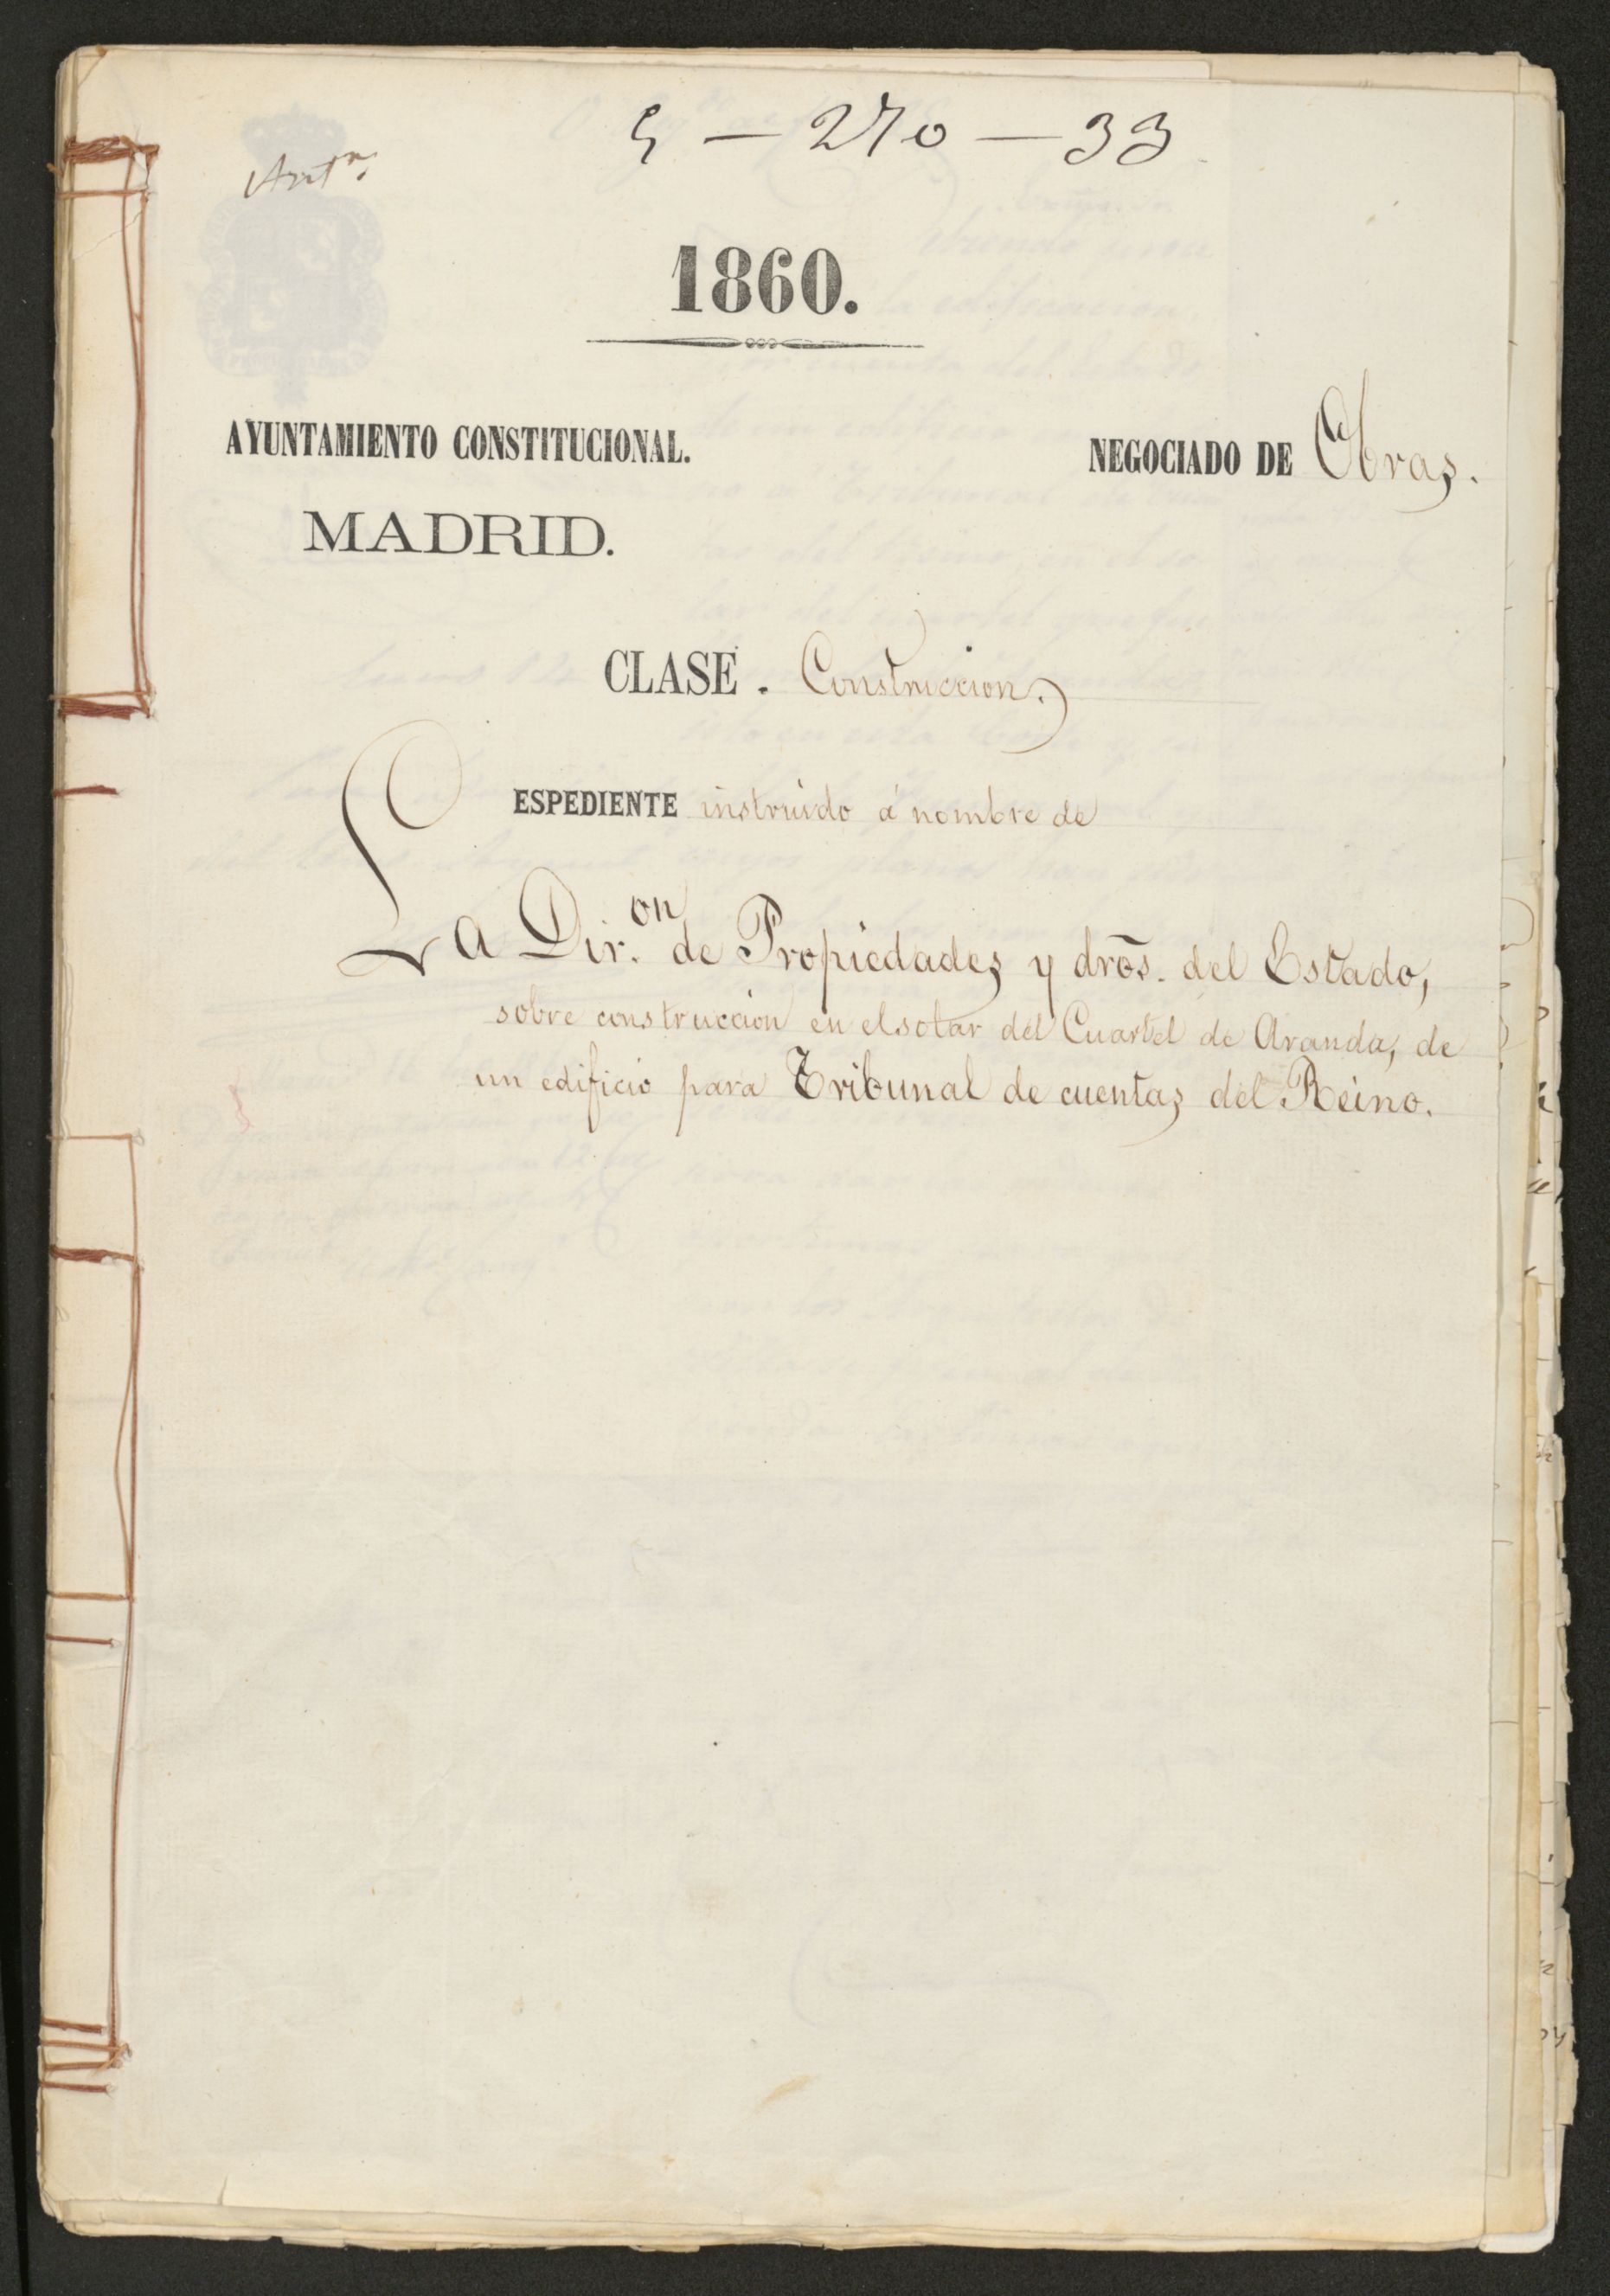 4 — 270 — 33
Antn.
1860.
AYUNTAMIENTO CONSTITUCIONAL.
NEGOCIADO DE Obras.
MADRID.
CLASE. Construccion.
ESPEDIENTE instruido á nombre de
La Dir.on de Propiedades y drõs. del Estado,
sobre construccion en el solar del Cuartel de Aranda, de
un edificio para Tribunal de cuentas del Reino.